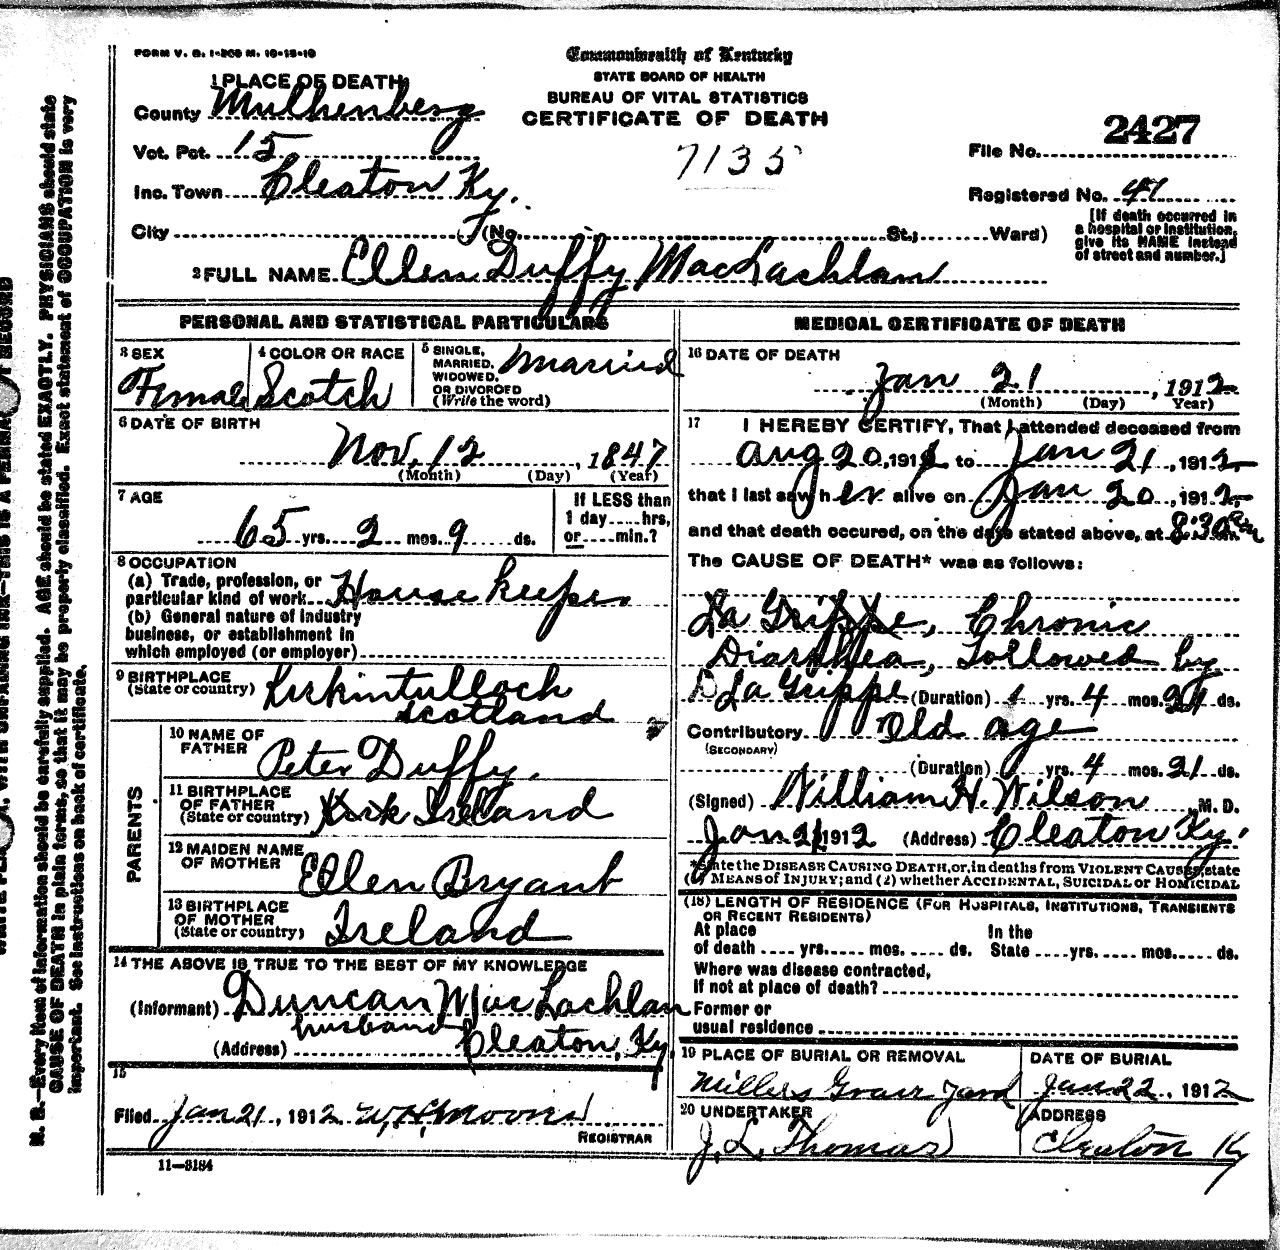 FORM V. S. 1-200 M. 10-15-10
Commonwealth of Kentucky
STATE BOARD OF HEALTH
BUREAU OF VITAL STATISTICS
CERTIFICATE OF DEATH
1 PLACE OF DEATH
County Muhlenberg
Vot. Pct. 15
Inc. Town Cleaton Ky.
City (No. St.; Ward)
7135
2427
File No.
Registered No. 41
[If death occurred in
a hospital or institution,
give its NAME instead
of street and number.]
2 FULL NAME Ellen Duffy MacLachlan
PERSONAL AND STATISTICAL PARTICULARS
3 SEX
Female
4 COLOR OR RACE
Scotch
5 SINGLE,
MARRIED,
WIDOWED,
OR DIVORCED
(Write the word)
Married
6 DATE OF BIRTH
Nov. 12, 1847
(Month) (Day) (Year)
7 AGE
65 yrs. 2 mos. 9 ds.
If LESS than
1 day.....hrs,
or.....min.?
8 OCCUPATION
(a) Trade, profession, or
particular kind of work House keeper
(b) General nature of industry
business, or establishment in
which employed (or employer)
9 BIRTHPLACE
(State or country) Kirkintulloch
Scotland
PARENTS
10 NAME OF
FATHER Peter Duffy.
11 BIRTHPLACE
OF FATHER
(State or country) Ireland
12 MAIDEN NAME
OF MOTHER Ellen Bryant
13 BIRTHPLACE
OF MOTHER
(State or country) Ireland
14 THE ABOVE IS TRUE TO THE BEST OF MY KNOWLEDGE
(Informant) Duncan MacLachlan
husband
(Address) Cleaton, Ky.
15
Filed Jan 21, 1912 W.H. Moons
REGISTRAR
11—3184
MEDICAL CERTIFICATE OF DEATH
16 DATE OF DEATH
Jan 21, 1912
(Month) (Day) Year)
17 I HEREBY CERTIFY, That I attended deceased from
Aug 20, 1911 to Jan 21, 1912
that I last saw her alive on Jan 20, 1912
and that death occured, on the date stated above, at 8:30 am
The CAUSE OF DEATH* was as follows:
La Grippe, Chronic
Diarrhea, followed by
La Grippe (Duration) yrs. 4 mos. 21 ds.
Contributory Old age
(SECONDARY)
(Duration) yrs. 4 mos. 21 ds.
(Signed) William H. Wilson, M. D.
Jan 21 1912 (Address) Cleaton Ky.
*State the DISEASE CAUSING DEATH, or, in deaths from VIOLENT CAUSES, state
(1) MEANS OF INJURY; and (2) whether ACCIDENTAL, SUICIDAL or HOMICIDAL
(18) LENGTH OF RESIDENCE (FOR HOSPITALS, INSTITUTIONS, TRANSIENTS
OR RECENT RESIDENTS)
At place In the
of death .... yrs. .... mos. .... ds. State .... yrs. .... mos. .... ds.
Where was disease contracted,
If not at place of death?
Former or
usual residence
19 PLACE OF BURIAL OR REMOVAL
Millers Grave Yard
DATE OF BURIAL
Jan 22, 1912
20 UNDERTAKER
J. L. Thomas
ADDRESS
Cleaton Ky
N. B.—Every item of information should be carefully supplied. AGE should be stated EXACTLY. PHYSICIANS should state
CAUSE OF DEATH in plain terms, so that it may be properly classified. Exact statement of OCCUPATION is very
important. See instructions on back of certificate.